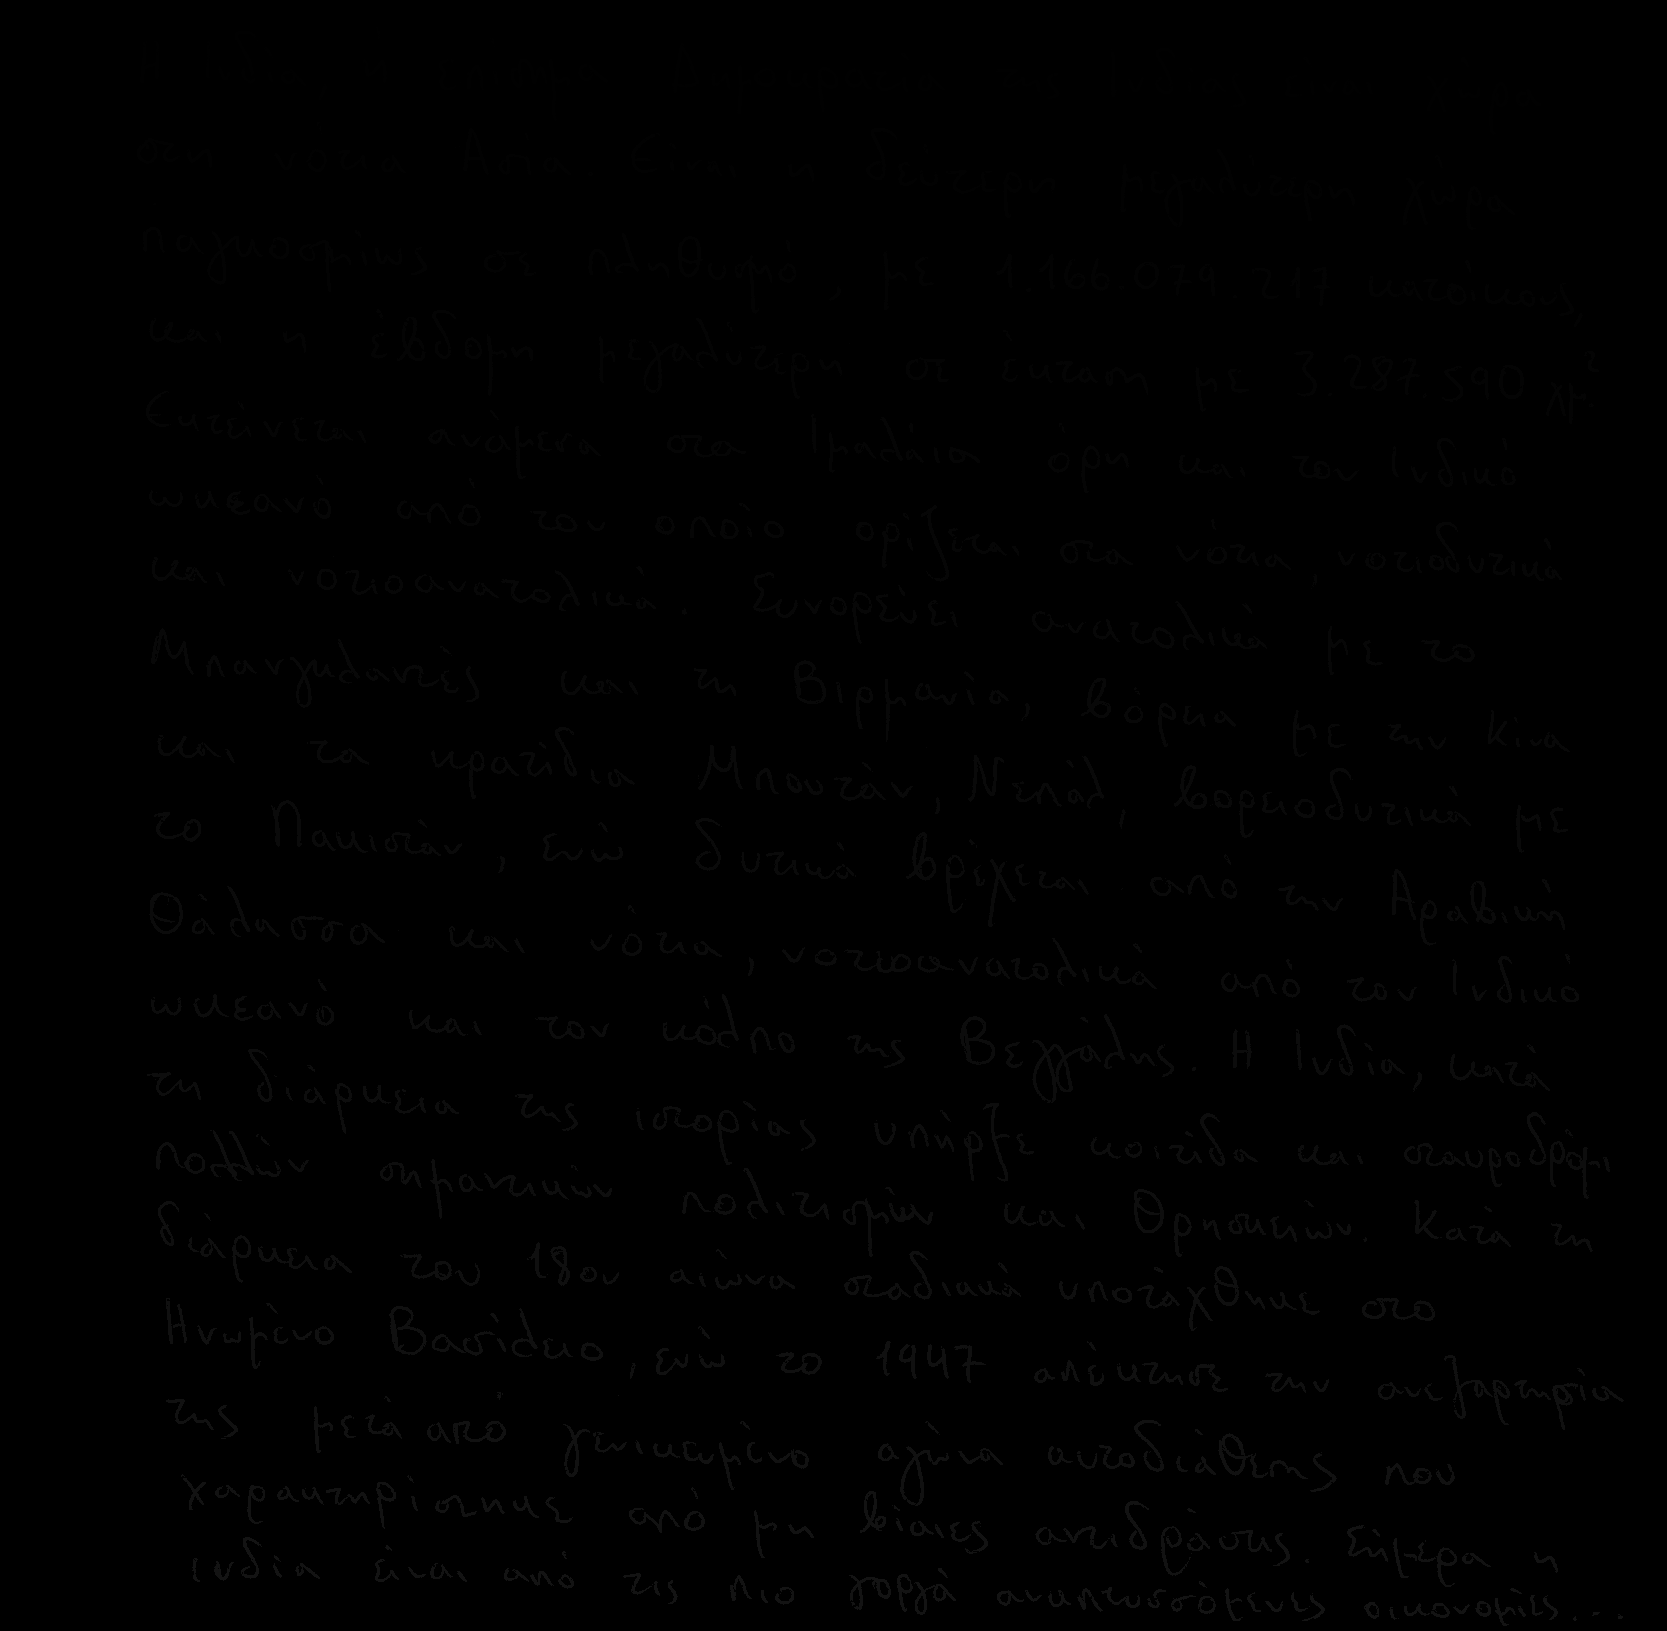 στη νοτιο Ασια. Είναι η δεύτερη μεγαλύτερη χώρα
παγκοσμίως σε πληθυσμό, με 1.166.079.217 κατοίκους,
και η έβδομη μεγαλύτερη σε έκταση με 3.287.590 χμ²
Εκτείνεται ανάμεσα στα Ιμαλάια όρη και τον Ινδικό
ωκεανό από τον οποίο ορίζεται στα νότια, νοτιοδυτικά
και νοτιοανατολικά. Συνορεύει ανατολικά με το
Μπανγκλαντές και τη Βιρμανία, βόρεια με την Κίνα
και τα κρατίδια Μπουτάν, Νεπάλ, βορειοδυτικά με
το Πακιστάν, ενώ δυτικά βρέχεται από την Αραβική
Θάλασσα και νότια, νοτιοανατολικά από τον Ινδικό
ωκεανό και τον κόλπο της Βεγγάλης. Η Ινδία, κατά
τη διάρκεια της ιστορίας υπήρξε κοιτίδα και σταυροδρόμι
πολλών σημαντικών πολιτισμών και Θρησκειών. Κατά τη
διάρκεια του 18ου αιώνα σταδιακά υποτάχθηκε στο
Ηνωμένο Βασίλειο, ενώ το 1947 απέκτησε την ανεξαρτησία
της μετά από γενικευμένο αγώνα αυτοδιάθεσης που
χαρακτηρίστηκε από μη βίαιες αντιδράσεις. Σήμερα η
ινδία είναι από τις πιο γοργά αναπτυσσόμενες οικονομίες...